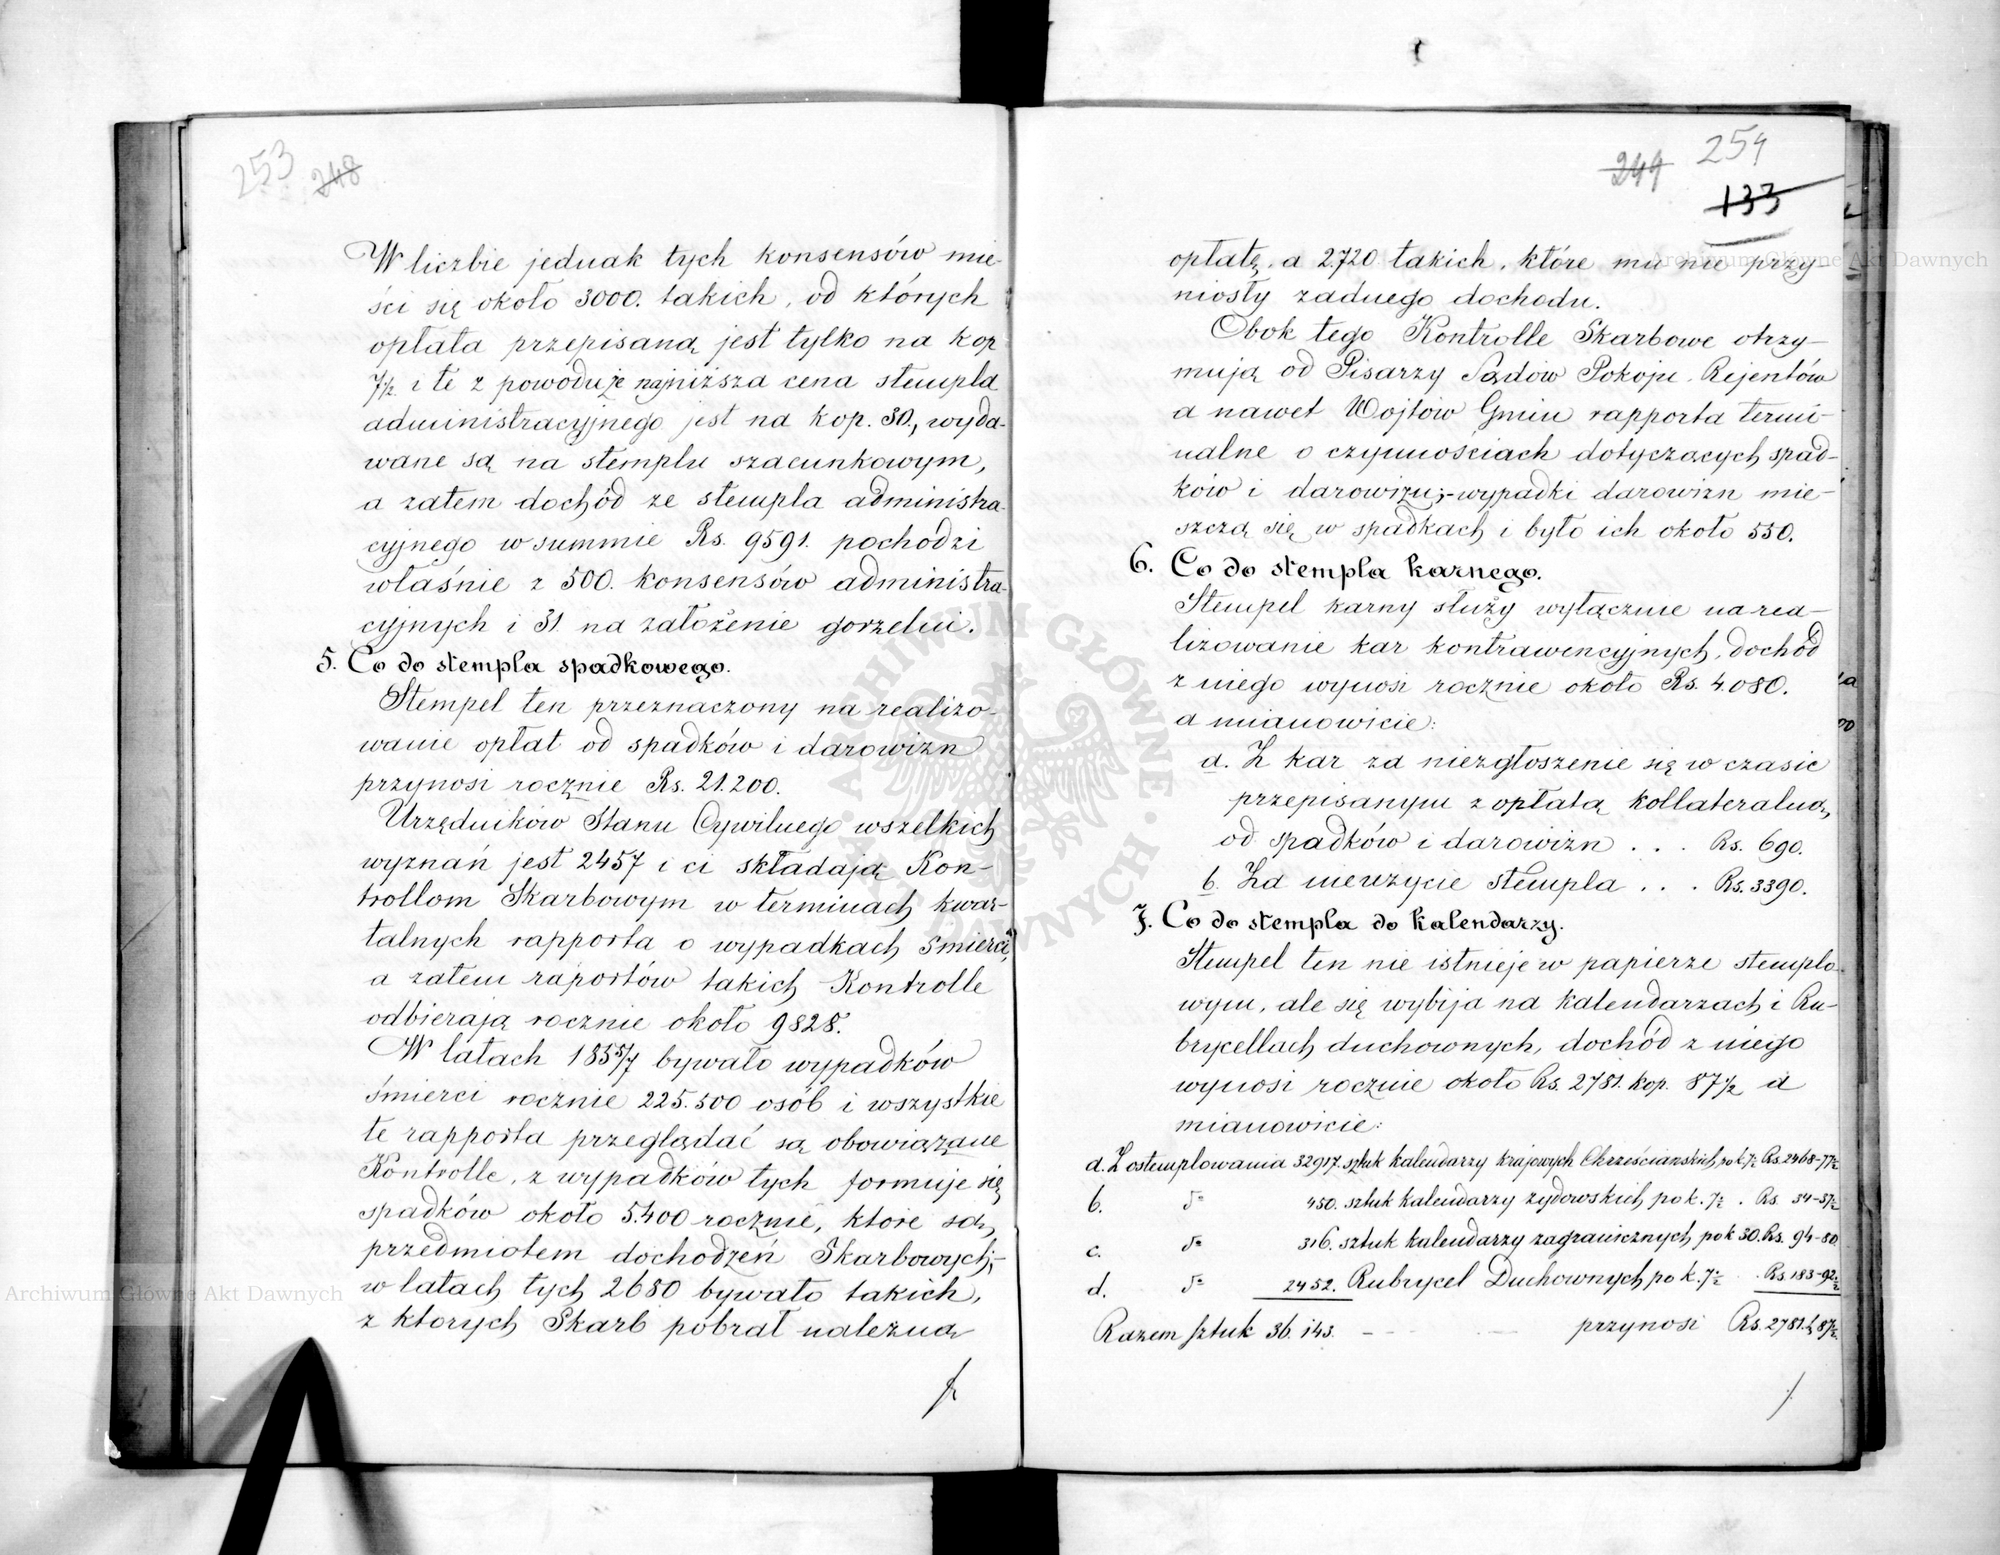 253 248
W liczbie jednak tych konsensów mie-
ści się około 3000. takich, od których
opłata przepisaną jest tylko na kop
7½ i te z powodu że najniższa cena stempla
administracyjnego jest na kop. 30., wyda-
wane są na stemplu szacunkowym,
a zatem dochód ze stempla administra-
cyjnego w summie Rs. 9591. pochodzi
właśnie z 500. konsensów administra-
cyjnych i 31 na założenie gorzelni.
5. Co do stempla spadkowego.
Stempel ten przeznaczony na realizo-
wanie opłat od spadków i darowizn
przynosi rocznie Rs. 21.200.
Urzędników Stanu Cywilnego wszelkich
wyznań jest 2457 i ci składają Kon-
trollom Skarbowym w terminach kwar-
talnych rapporta o wypadkach śmierci,
a zatem raportów takich Kontrolle
odbierają rocznie około 9828.
W latach 1855/7 bywało wypadków
śmierci rocznie 225.500 osób i wszystkie
te rapporta przeglądać są obowiązane
Kontrolle, z wypadków tych formuje się
spadków około 5.400 rocznie, które są
przedmiotem dochodzeń Skarbowych;-
w latach tych 2680 bywało takich,
z ktorych Skarb pobrał należną
249 254
133
opłatę, a 2.720 takich, które mu nie przy-
niosły żadnego dochodu.
Obok tego Kontrolle Skarbowe otrzy-
mują od Pisarzy Sądów Pokoju, Rejentów
a nawet Wojtów Gmin rapporta termi-
nalne o czynnościach dotyczących spad-
ków i darowizn;-wypadki darowizn mie-
szczą się w spadkach i było ich około 550.
6. Co do stempla karnego.
Stempel karny służy wyłącznie na rea-
lizowanie kar kontrawencyjnych, dochód
z niego wynosi rocznie około Rs. 4.080.
a mianowicie:
a. Z kar za niezgłoszenie się w czasie
przepisanym z opłatą kollateralną,
od spadków i darowizn . . . Rs. 690.
b. Za nieużycie stempla . . . Rs. 3390.
7. Co do stempla do kalendarzy.
Stempel ten nie istnieje w papierze stemplo-
wym, ale się wybija na kalendarzach i Ru-
brycellach duchownych, dochód z niego
wynosi rocznie około Rs. 2781. kop. 87½ a
mianowicie:
a. Z ostemplowania 32917. sztuk kalendarzy krajowych Chrześcianskich, po k. 7½ Rs. 2468-77½
b. d° 450. sztuk kalendarzy żydowskich po k. 7½ . Rs. 34-37½
c. d° 316. sztuk kalendarzy zagranicznych, po k 30. Rs. 94-80.
d. d° 2452. Rubrycel Duchownych po k. 7½ . Rs. 183-92½
Razem sztuk 36.143. — przynosi Rs. 2781. k 87½.